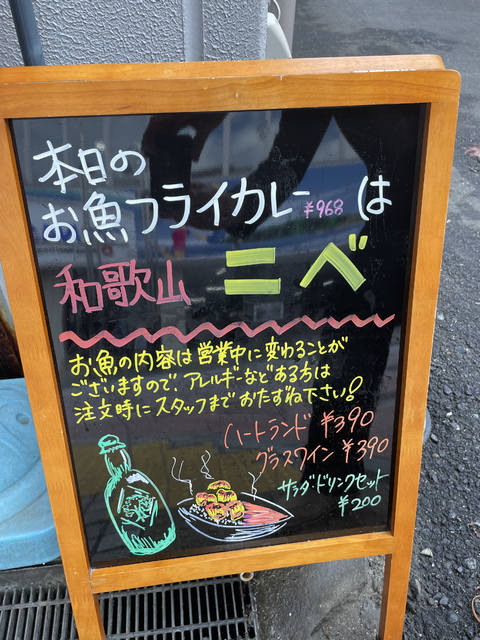 本日の
お魚フライカレー ¥968 は
和歌山 ニベ
お魚の内容は営業中に変わることが
ございますので、アレルギーなどある方は
注文時にスタッフまでおたずね下さい!
ハートランド ¥390
グラスワイン ¥390
サラダ・ドリンクセット
¥200